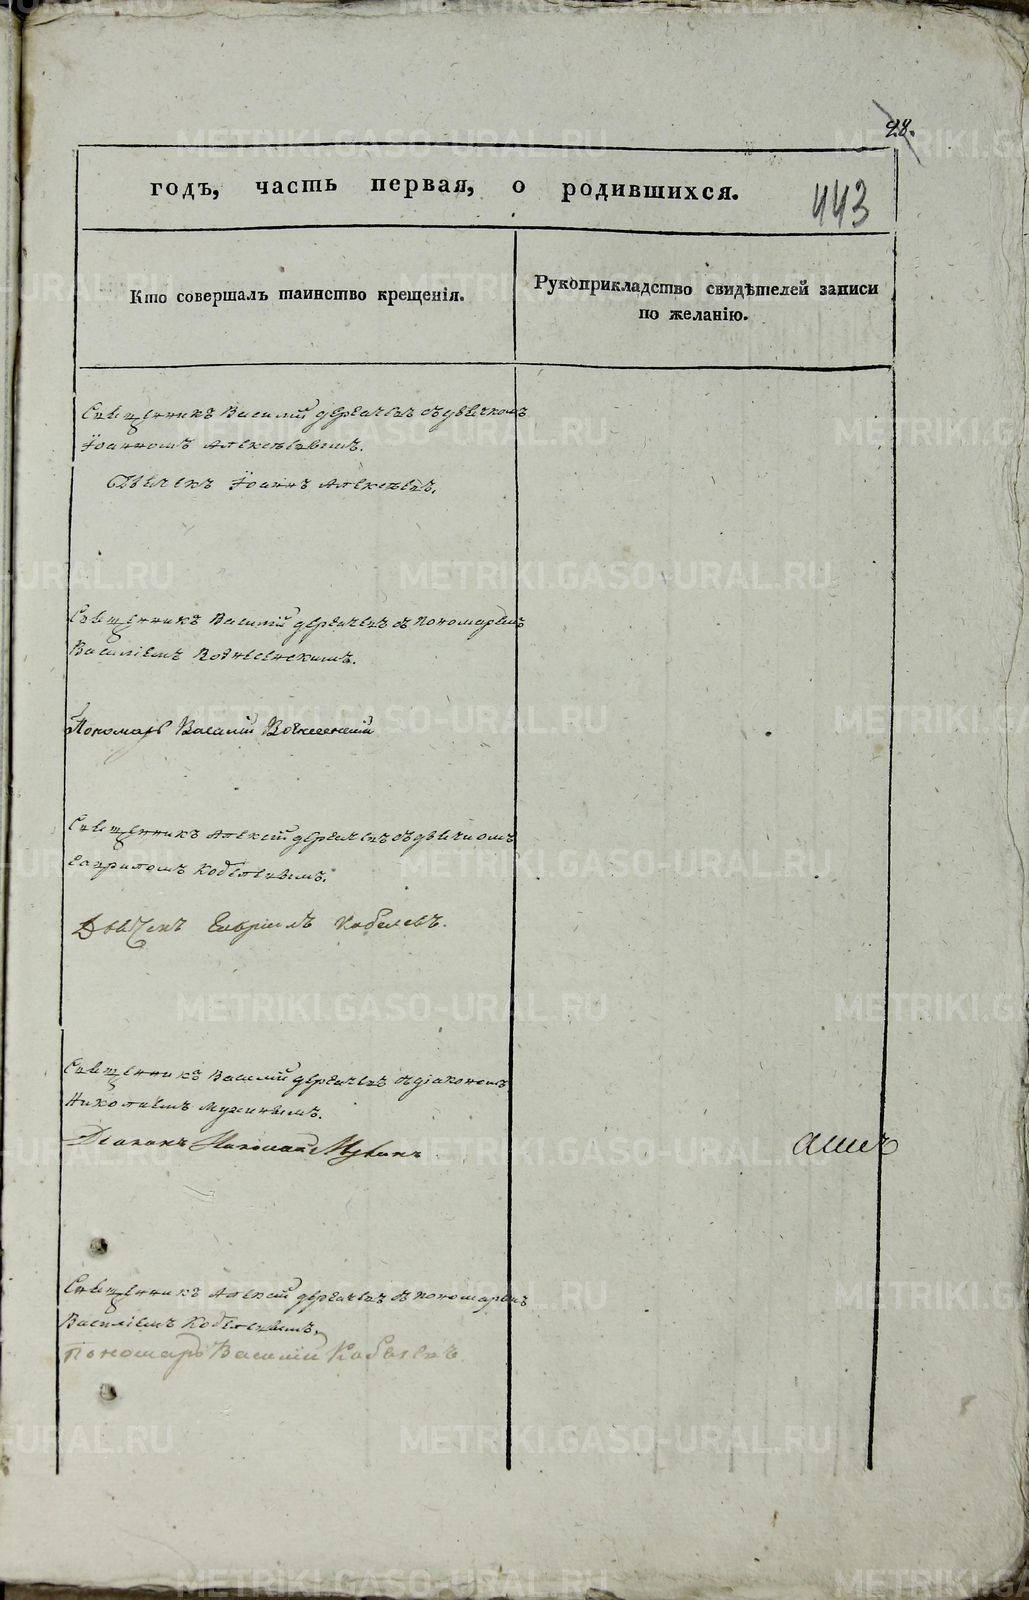 28.
годъ, часть первая, о родившихся.
443
Кто совершалъ таинство крещенія.
Рукоприкладство свидѣтелей записи
по желанію.
Священникъ Василій Дергачевъ съ дьячкомъ
Іоанномъ Алексѣевымъ.
Дьячекъ Іоаннъ Алексѣевъ.
Священникъ Василій Дергачевъ съ пономаремъ
Василіемъ Вознесенскимъ.
Пономарь Василій Вознесенскій
Священникъ Алексій Дергачевъ съ дьячкомъ
Гавриломъ Кобелевымъ.
Дьячекъ Гавріилъ Кобелевъ.
Священникъ Василій Дергачевъ съ діакономъ
Николаемъ Мухинымъ.
Діаконъ Николай Мухинъ
Священникъ Алексій Дергачевъ съ пономаремъ
Василіемъ Кобелевымъ.
Пономарь Василій Кобелевъ
METRIKI.GASO-URAL.RU